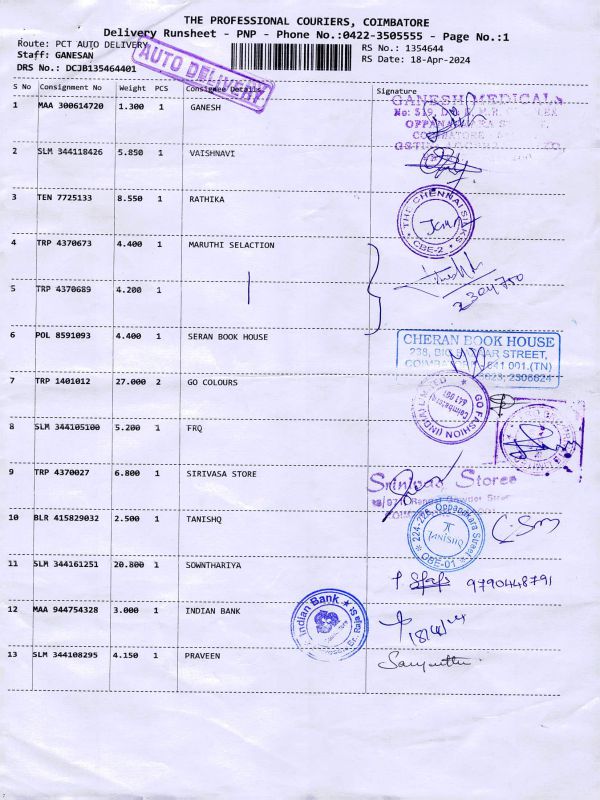 THE PROFESSIONAL COURIERS, COIMBATORE
Delivery Runsheet - PNP - Phone No.:0422-3505555 - Page No.:1
Route: PCT AUTO DELIVERY
RS No.: 1354644
Staff: GANESAN
RS Date: 18-Apr-2024
DRS No.: DCJB135464401
AUTO DELIVERY
S No Consignment No Weight PCS Consignee Details Signature
1 MAA 300614720 1.300 1 GANESH
GANESH MEDICALS
No: 519,
2 SLM 344118426 5.850 1 VAISHNAVI
3 TEN 7725133 8.550 1 RATHIKA
THE CHENNAI SILKS
CBE-2
4 TRP 4370673 4.400 1 MARUTHI SELACTION
5 TRP 4370689 4.200 1
6 POL 8591093 4.400 1 SERAN BOOK HOUSE
CHERAN BOOK HOUSE
238, BIG BAZAAR STREET,
641 001.(TN)
2306624
7 TRP 1401012 27.000 2 GO COLOURS
GO FASHION (INDIA) LIMITED
Coimbatore
641 001
8 SLM 344105100 5.200 1 FRQ
9 TRP 4370027 6.800 1 SIRIVASA STORE
Srinivas Stores
10 BLR 415829032 2.500 1 TANISHQ
224-226, Oppanakara Street
TANISHQ
CBE-01
11 SLM 344161251 20.800 1 SOWNTHARIYA
9790448791
12 MAA 944754328 3.000 1 INDIAN BANK
Indian Bank
18/4/24
13 SLM 344108295 4.150 1 PRAVEEN